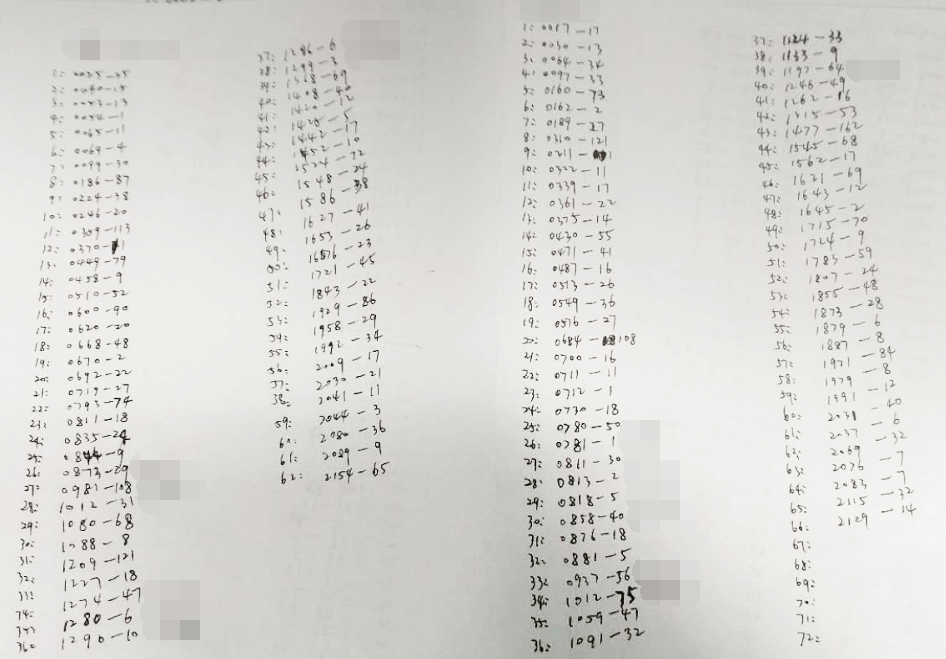 1: 0025-25
2: 0040-15
3: 0053-13
4: 0054-1
5: 0065-11
6: 0069-4
7: 0099-30
8: 0186-87
9: 0224-38
10: 0246-20
11: 0309-113
12: 0370-1
13: 0449-79
14: 0458-9
15: 0510-52
16: 0600-90
17: 0620-20
18: 0668-48
19: 0670-2
20: 0692-22
21: 0719-27
22: 0793-74
23: 0811-18
24: 0835-24
25: 0844-9
26: 0873-29
27: 0981-108
28: 1012-31
29: 1080-68
30: 1088-8
31: 1209-121
32: 1227-18
33: 1274-47
34: 1280-6
35: 1290-10
36:
37: 1286-6
38: 1299-3
39: 1368-69
40: 1408-40
41: 1420-12
42: 1425-5
43: 1442-17
44: 1452-10
45: 1524-72
46: 1548-24
47: 1586-38
48: 1627-41
49: 1653-26
50: 1676-23
51: 1721-45
52: 1843-22
53: 1929-86
54: 1958-29
55: 1992-34
56: 2009-17
57: 2030-21
58: 2041-11
59: 2044-3
60: 2080-36
61: 2089-9
62: 2154-65
1: 0017-17
2: 0030-13
3: 0064-34
4: 0097-33
5: 0160-73
6: 0162-2
7: 0189-27
8: 0310-121
9: 0311-1
10: 0322-11
11: 0339-17
12: 0361-22
13: 0375-14
14: 0430-55
15: 0471-41
16: 0487-16
17: 0513-26
18: 0549-36
19: 0576-27
20: 0684-108
21: 0700-16
22: 0711-11
23: 0712-1
24: 0730-18
25: 0780-50
26: 0781-1
27: 0811-30
28: 0813-2
29: 0818-5
30: 0858-40
31: 0876-18
32: 0881-5
33: 0937-56
34: 1012-75
35: 1059-47
36: 1091-32
37: 1124-33
38: 1133-9
39: 1197-64
40: 1246-49
41: 1262-16
42: 1315-53
43: 1477-162
44: 1545-68
45: 1562-17
46: 1631-69
47: 1643-12
48: 1645-2
49: 1715-70
50: 1724-9
51: 1783-59
52: 1807-24
53: 1855-48
54: 1873-28
55: 1879-6
56: 1887-8
57: 1971-84
58: 1979-8
59: 1991-12
60: 2031-40
61: 2037-6
62: 2069-32
63: 2076-7
64: 2083-7
65: 2115-32
66: 2129-14
67:
68:
69:
70:
71:
72: